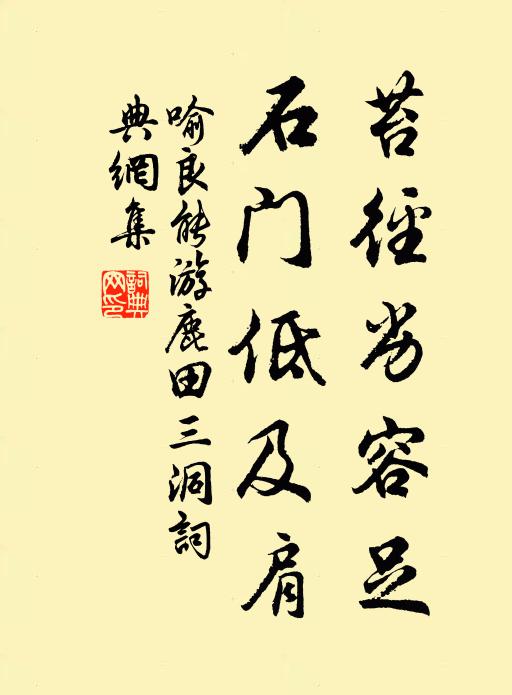 苔徑劣容足
石门低及肩
喻良能游鹿田三洞詞
典網集
詞典網印